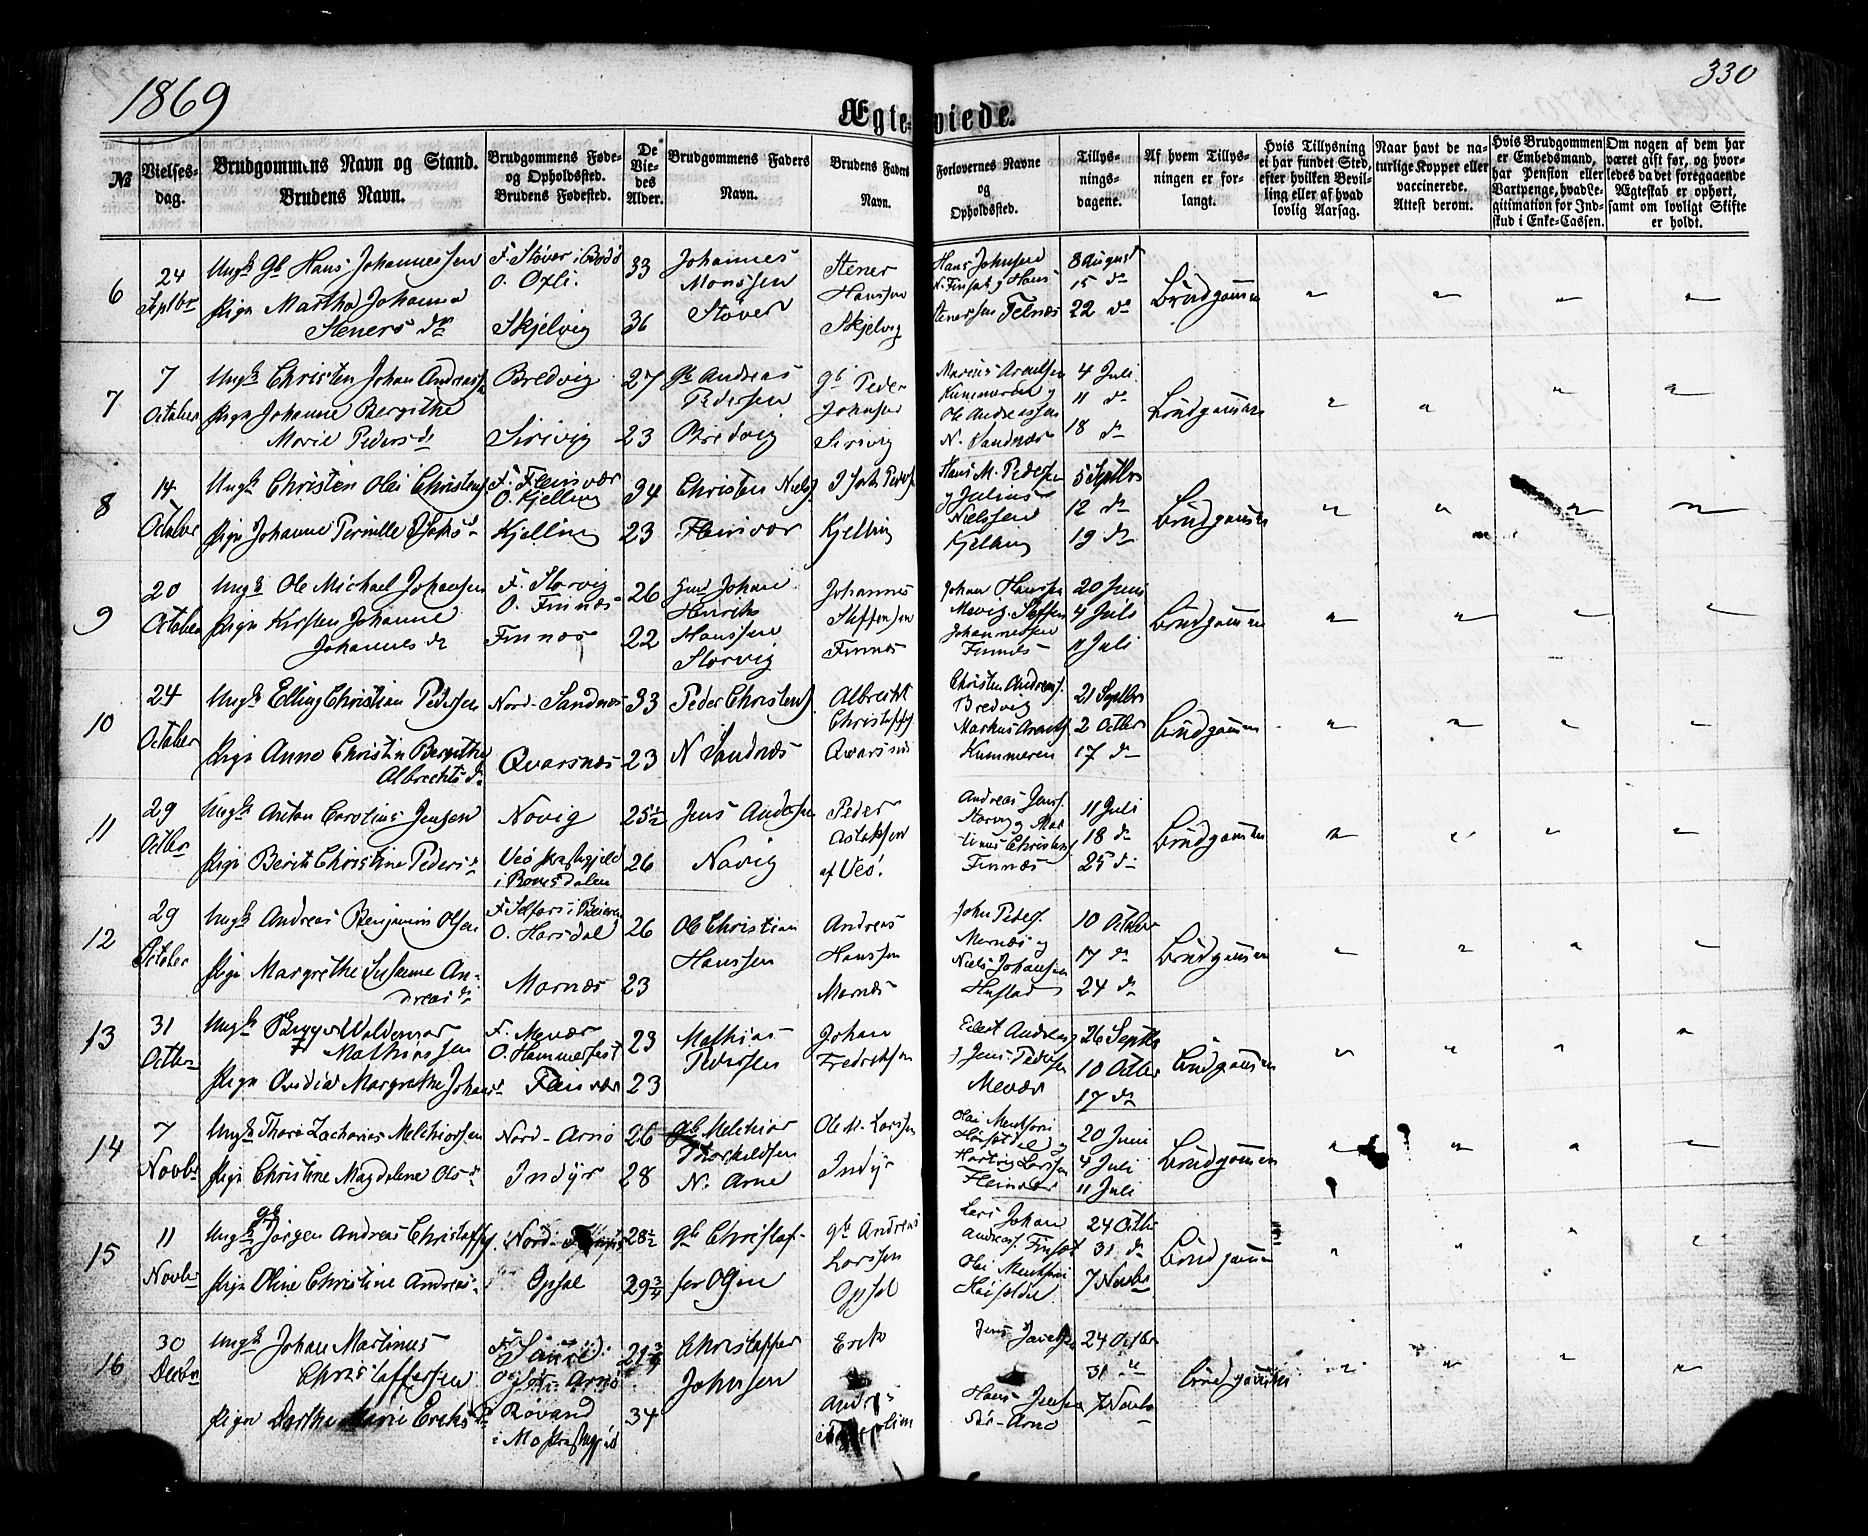 1869
330
Ægteviede.
№
Vielses-
dag.
Brudgommens Navn og Stand.
Brudens Navn.
Brudgommens Føde-
og Opholdssted.
Brudens Fødested.
De
Vie-
des
Alder.
Brudgommens Faders
Navn.
Brudens Faders
Navn.
Forlovernes Navne
og
Opholdssted.
Tillys-
nings-
dagene.
Af hvem Tillys-
ningen er for-
langt.
Hvis Tillysning
ei har fundet Sted,
efter hvilken Bevil-
ling eller af hvad
lovlig Aarsag.
Naar havt de na-
turlige Kopper eller
vaccinerede.
Attest derom.
Hvis Brudgommen
er Embedsmand,
har Pension eller
Vartpenge, hvad Le-
gitimation for Ind-
skud i Enke-Cassen.
Om nogen af dem har
været gift før, og hvor-
ledes da det foregaaende
Ægteskab er ophørt,
samt om lovligt Skifte
er holdt.
6
24
Septbr
Ungk Gb Hans Johannessen
Pige Martha Johanna
Steners dr
F. Støver i Bodø
O. Oxli.
Skjelvig
33
36
Johannes
Monssen
Støver
Stener
Hanssen
Skjelvig
Hans Johnsen
N. Finset og Hans
Stenerssen Felnæs
8 August
15 do
22 do
Brudgommen
7
7
October
Ungk Christen Johan Andreass
Pige Johanne Bergithe
Marie Peders dr
Bredvig
Sirivig
27
23
Gb Andreas
Pedersen
Bredvig
Gb Peder
Johnsen
Sirivig
Marius Arentsen
Kummeren og
Ole Andreassen
N. Sandnæs
4 Juli
11 do
18 do
Brudgommen
8
14
October
Ungk Christen Olai Christens.
Pige Johanne Pernille
F. Fleinvær
O. Kjelling
Kjelling
34
23
Christen Niels.
Fleinvær
Kjelling
Hans M. Peders.
og Julius
Nielssen
Kjelling
5 Septbr
12 do
19 do
Brudgommen
9
20
October
Ungk Ole Michael Johansen
Pige Kirsten Johanne
Johannes dr
F. Storvig
O. Finnæs
Finnæs
26
22
Johan
Henrik
Hanssen
Storvig
Johannes
Steffensen
Finnes
Johan Hanssen
Steffen
Johannessen
Finnes
20 Juni
4 Juli
11 Juli
Brudgommen
10
24
October
Ungk Elling Christian Pedersen
Pige Anna Christin Bergithe
Albrechts dr
Nord-Sandnæs
Qvarsnæs
33
23
Peder Christens.
N Sandnæs
Albrecht
Christoffs.
Qvarsnæs
Christen Andreas.
Bredvig
Markus Arents.
Kummeren
21 Septbr
2 Octbr
17 do
Brudgommen
11
29
Octbr
Ungk Anton Carolius Jensen
Pige Berit Christine Peders dr
Novig
Veø Præstegjeld
i Romsdalen
25½
26
Jens Andersen
Novig
Peder
af Veø!
Andreas Jens.
Finnæs
11 Juli
18 do
25 do
Brudgommen
12
29
October
Ungk Andreas Benjamin Olsen
Pige Margrethe Susanne An-
dreas dr
O. Horsdal
Mornæs
26
23
Ole Christian
Hanssen
Andreas
Hanssen
Mornæs
John Peders.
Mornæs og
Niels Johansen
10 Octbr
17 do
24 do
Brudgommen
13
31
Octbr
Ungk Waldemar
Mathiassen
Pige Ovidia Margrethe Johans dr
F. Mevær
O. Hammerfest
Fleinvær
23
23
Mathias
Pedersen
Johan
Fredriksen
Eilert Andreas.
og Jens Pedersen
Mevær
26 Septbr
10 Octbr
17 do
Brudgommen
14
7
Novbr
Ungk Thore Zacharias Melchiorssen
Pige Christine Magdalene Ols dr
Nord-Arnø
Indyr
26
28
Gb Melchior
Thorkildsen
N. Arnø
Ole M. Larssen
Indyr
Olai Mentsen
Hartvig Larssen
Fleinvær
20 Juni
4 Juli
11 Juli
Brudgommen
15
11
Novbr
Ungk Gb Jørgen Andreas Christoffs.
Pige Oline Christine Andreas
Nord-
Opsal
28½
29¾
Gb Christof-
fer Olsen
Gb Andreas
Larssen
Opsal
Lars Johan
Andreas. Finset
Olai Mentsen
24 Octbr
31 do
7 Novbr
Brudgommen
16
30
Decbr
Ungk Johan Martinus
Christoffersen
Pige Dorthe Marie Eriks dr
Røvand
i Mo Præstegjeld
34
Christoffer
Johnsen
Erik
Anders
Jens
Hans Jensen
Sør-Arnø
24 Octbr
31 "
7 Novbr
Brudgommen